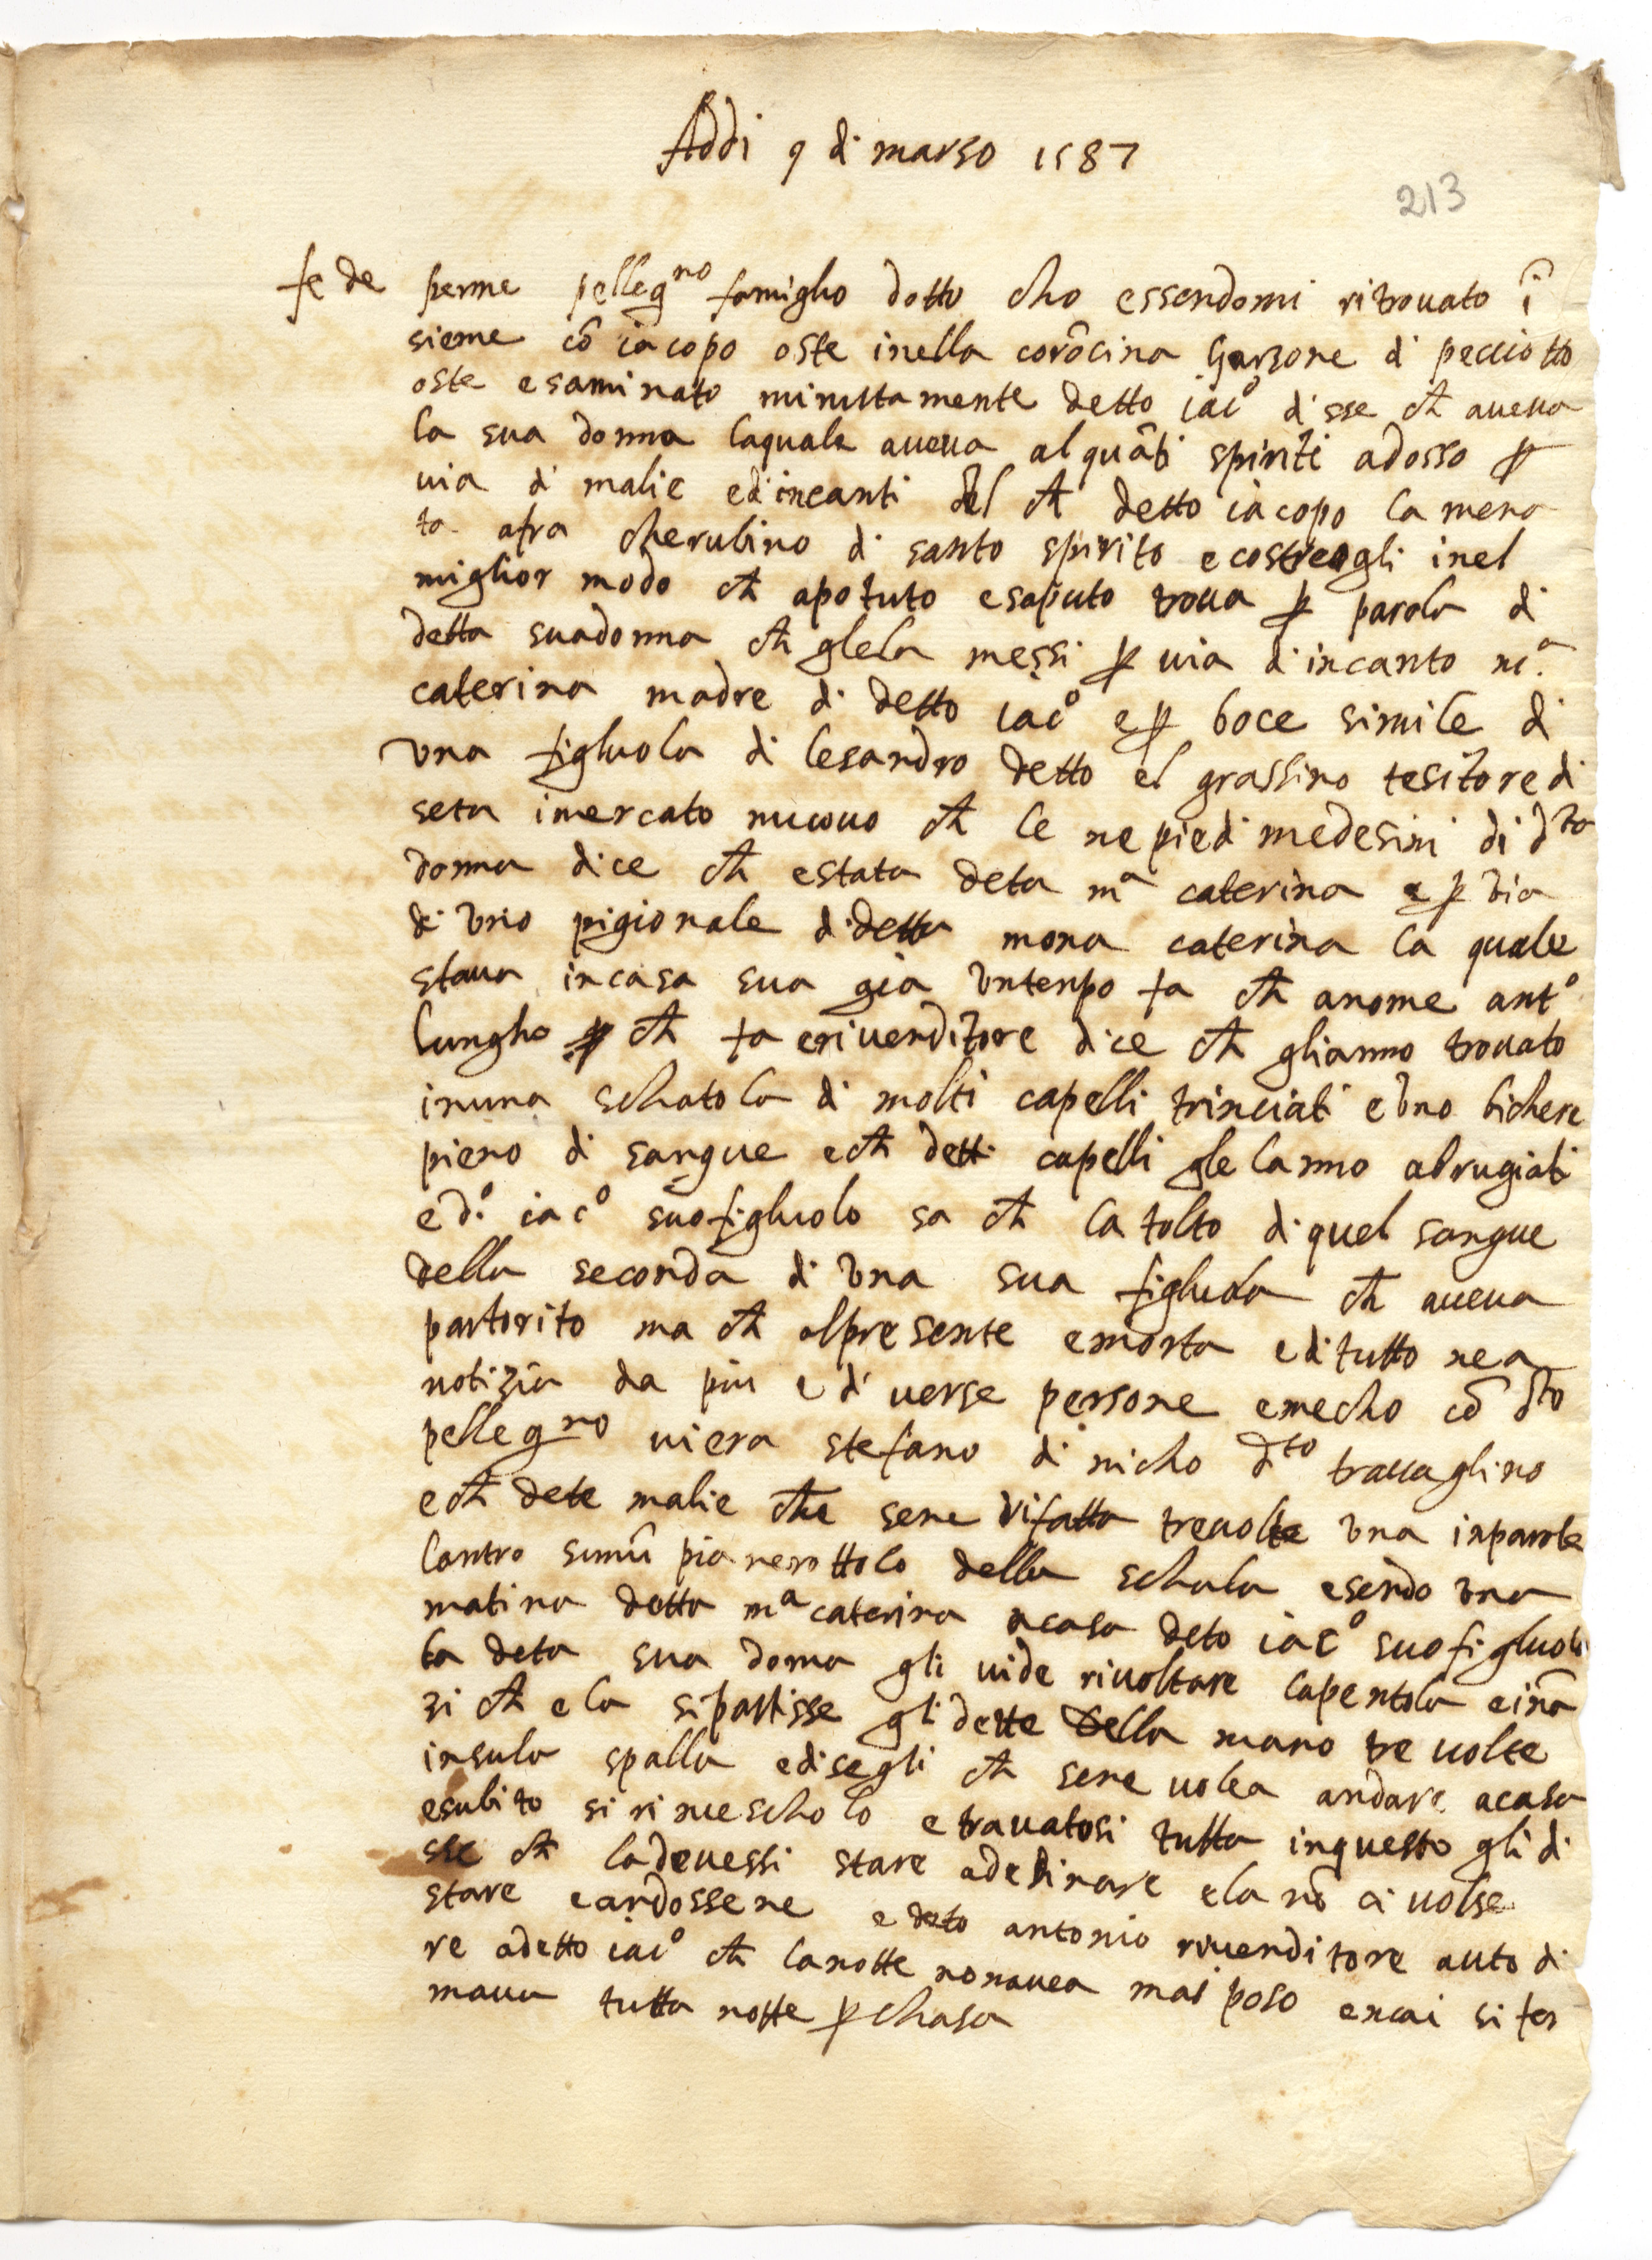 Addi 9 di marso 1587
213
fede perme pelleg^no famiglio detto cho essendomi ritrouato ĩ
sieme cõ iacopo oste inella corõcina garzone di pecciotto
oste esaminato minuttamente detto iac^o disse ch aueua
la sua donna laquale aueua alquãti spiriti adosso p
uia di malie ed incanti del ch detto iacopo la mena
to afra cherubino di santo spirito e costregli inel
miglior modo ch apotuto esaputo troua p parola di
detta suadonna ch glela messi p uia d incanto m^a
caterina madre di detto iac^o e p boce simile di
una figluola di lesandro detto el grassino tesitore di
seta imercato nuouo ch le ne piedi medesimi di d^ta
donna dice ch estata deta m^a caterina e p via
di uno pigionale di detta mona caterina la quale
staua incasa sua gia untenpo fa ch anome ant^o
lungho p ch fa erivenditore dice ch glianno trouato
inuna schatola di molti capelli trinciati e uno bichere
pieno di sangue ech detti capelli gle lanno abrugiati
e d^o iac^o suofigluolo sa ch la tolto di quel sangue
della seconda di una sua figluola ch aueua
partorito ma ch alpresente emorta editutto nea
notizia da piu e di uerse persone emecho cõ d^to
pelleg^no uiera stefano di nicho d^to trauaglino
ech dete malie che sene difatta treuolte una inparole
lantro sunũ pianerottolo della schala esendo una
matina detta m^a caterina acasa deto iac^o suofigluolo
la deta sua donna gli uide riuoltare lapentola einã
zi ch ela sipartisse gli dette della mano tre uolte
insula spalla edisegli ch sene uolea andare acasa
esubito si rimescholo e trauatosi tutta inquesto gli di
sse ch ladouessi stare adesinare ela nõ ci uolse
stare eandossene e deto antonio riuenditore auto di
re adetto iac^o ch lanotte nonauea mai poso emai si fer
maua tutta notte p chasa